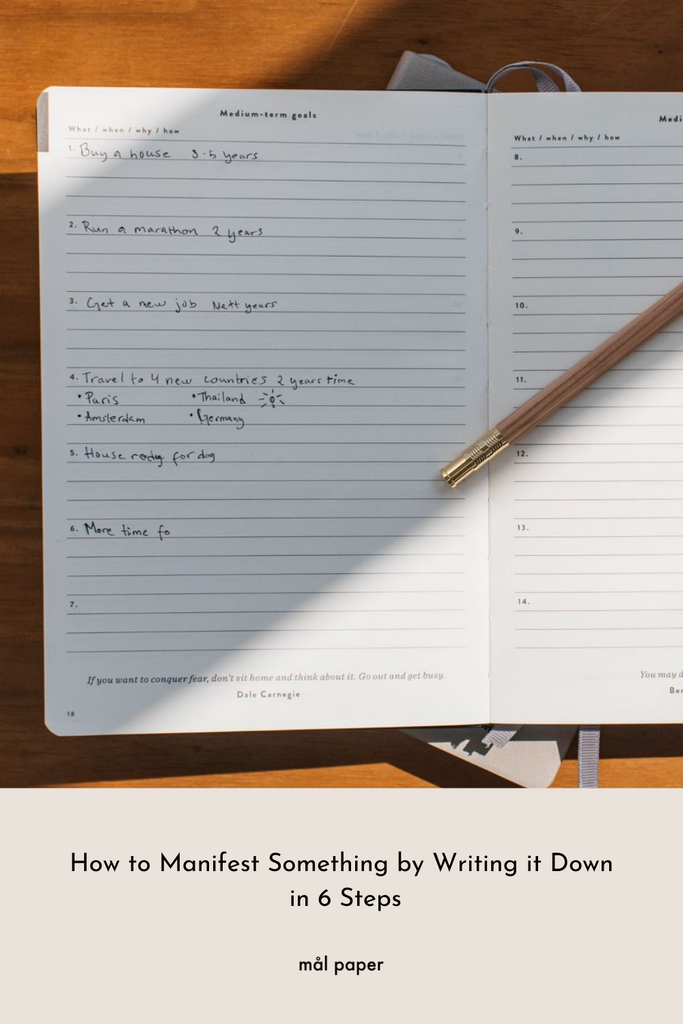 Medium-term goals
What / when / why / how
1. Buy a house 3-5 years
2. Run a marathon 2 years
3. Get a new job Nett years
4. Travel to 4 new countries 2 years time
• Paris • Thailand
• Amsterdam • Germany
5. House redy for dog
6. More time fo
7.
If you want to conquer fear, don't sit home and think about it. Go out and get busy.
Dale Carnegie
18
Medi
What / when / why / how
8.
9.
10.
11.
12.
13.
14.
You may d
Be
How to Manifest Something by Writing it Down
in 6 Steps
mål paper